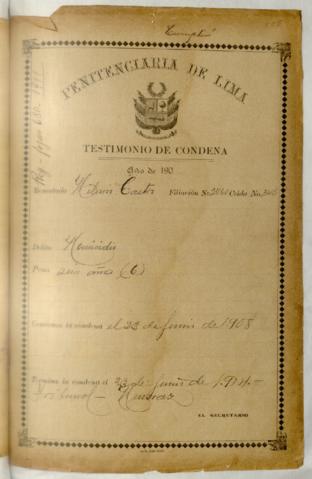 Cumplió
PENITENCIARIA DE LIMA
TESTIMONIO DE CONDENA
Año de 190
Rematado Castro Filiación No. Celda No.
Delito Homicidio
Pena seis años (6)
Comienza la condena el 23 de Junio de 1908
Termina la condena el 23 de Junio de 1914
Tribunal Huaraz
EL SECRETARIO